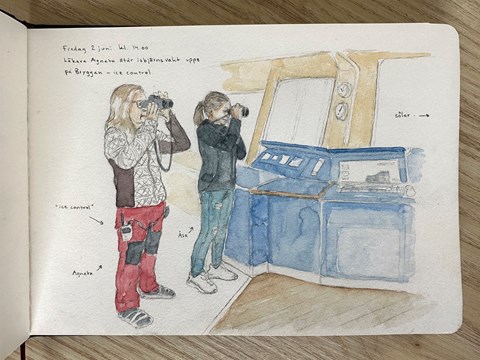 Fredag 2 juni kl. 14.00
Agneta står isbjörnsvakt uppe
på Bryggan - ice control
sälar →
"ice control"
Åsa
Agneta